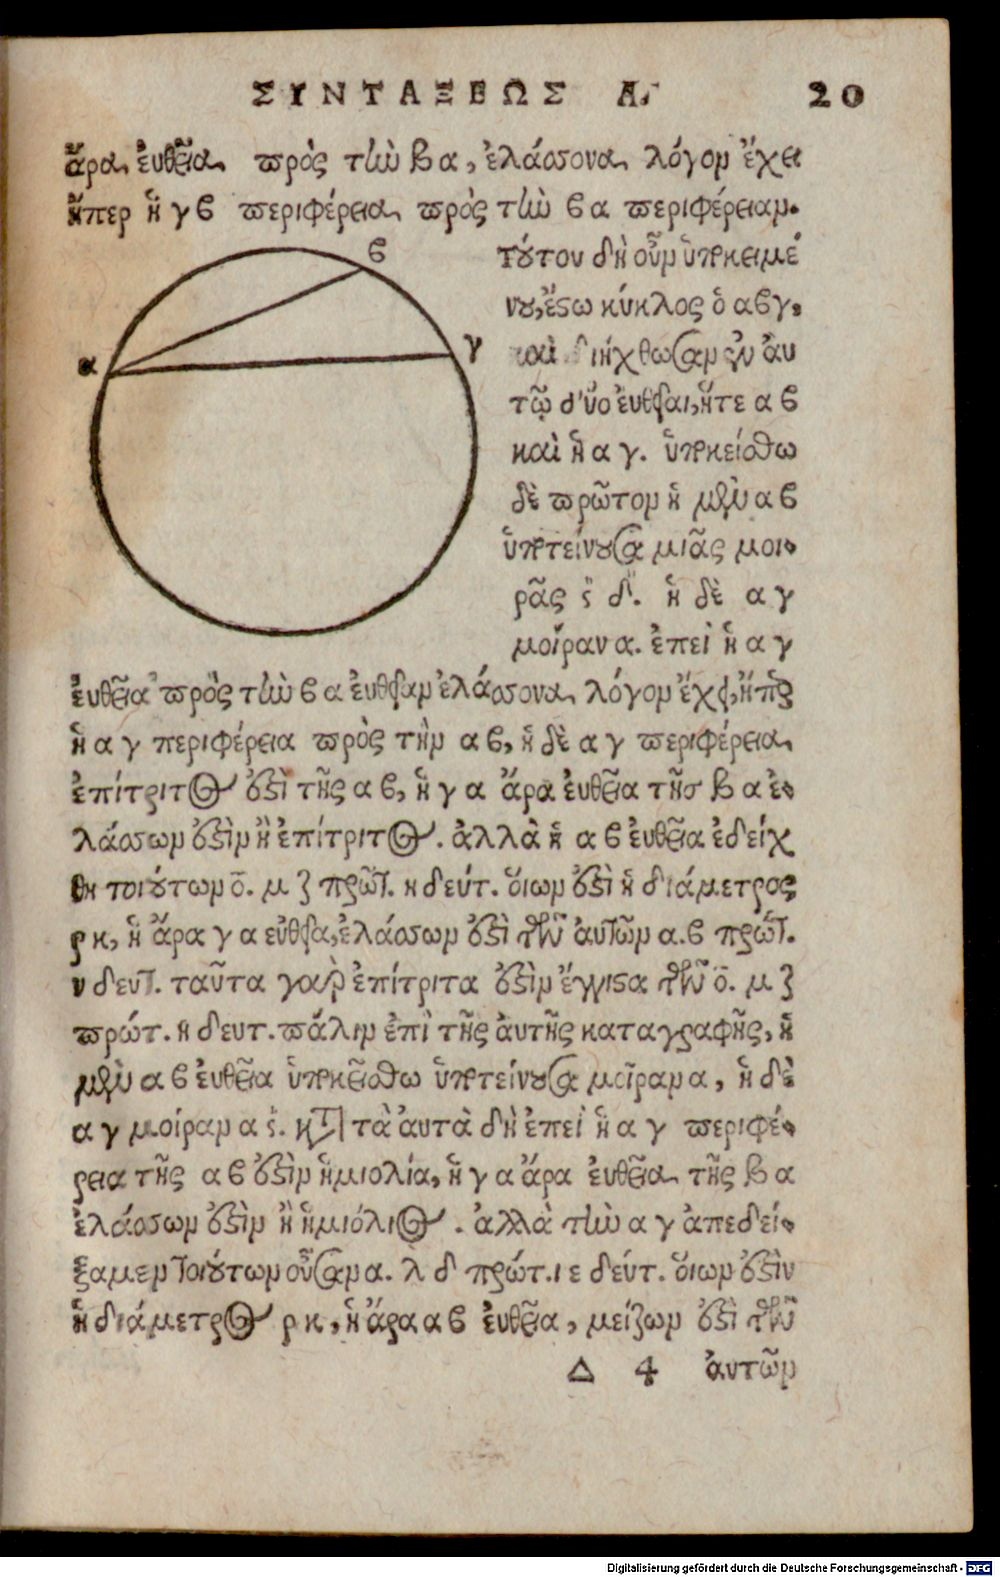 ΣΥΝΤΑΞΕΩΣ Α. 20
ἄρα εὐθεῖα πρὸς τὴν βα, ἐλάσσονα λόγον ἔχει
ἤπερ ἡ γβ περιφέρεια πρὸς τὴν βα περιφέρειαν.
β
α
γ
τούτου δὴ οὖν ὑποκειμέ
νου, ἔστω κύκλος ὁ αβγ,
καὶ διήχθωσαν ἐν αὐ
τῷ δύο εὐθεῖαι, ἥτε αβ
καὶ ἡ αγ. ὑποκείσθω
δὲ πρῶτον ἡ μὲν αβ
ὑποτείνουσα μιᾶς μοι-
ρᾶς δ. ἡ δὲ αγ
μοῖραν α. ἐπεὶ ἡ αγ
εὐθεῖα πρὸς τὴν βα εὐθεῖαν ἐλάσσονα λόγον ἔχει, ἤπερ
ἡ αγ περιφέρεια πρὸς τὴν αβ, ἡ δὲ αγ περιφέρεια
ἐπίτριτος ἐστὶ τῆς αβ, ἡ γα ἄρα εὐθεῖα τῆς βα ἐ-
λάσσων ἐστὶν ἢ ἐπίτριτος. ἀλλὰ ἡ αβ εὐθεῖα ἐδείχ
θη τοιούτων ō. μζ πρῶτ. η δεύτ. οἵων ἐστὶ ἡ διάμετρος
ρκ, ἡ ἄρα γα εὐθεῖα, ἐλάσσων ἐστὶ τῶν αὐτῶν α.β πρώτ.
ν δευτ. ταῦτα γὰρ ἐπίτριτα ἐστὶν ἔγγιστα τῶν ō. μζ
πρώτ. η δευτ. πάλιν ἐπὶ τῆς αὐτῆς καταγραφῆς, ἡ
μὲν αβ εὐθεῖα ὑποκείσθω ὑποτείνουσα μοῖραν α, ἡ δὲ
αγ μοίραν α. κατὰ τὰ αὐτὰ δὴ ἐπεὶ ἡ αγ περιφέ-
ρεια τῆς αβ ἐστὶν ἡμιολία, ἡ γα ἄρα εὐθεῖα τῆς βα
ἐλάσσων ἐστὶν ἢ ἡμιόλιος. ἀλλὰ τὴν αγ ἀπεδεί-
ξαμεν τοιούτων οὖσαν α. λδ πρώτ. ιε δεύτ. οἵων ἐστὶν
ἡ διάμετρος ρκ, ἡ ἄρα αβ εὐθεῖα, μείζων ἐστὶ τῶν
Δ 4 αὐτῶν
Digitalisierung gefördert durch die Deutsche Forschungsgemeinschaft - DFG